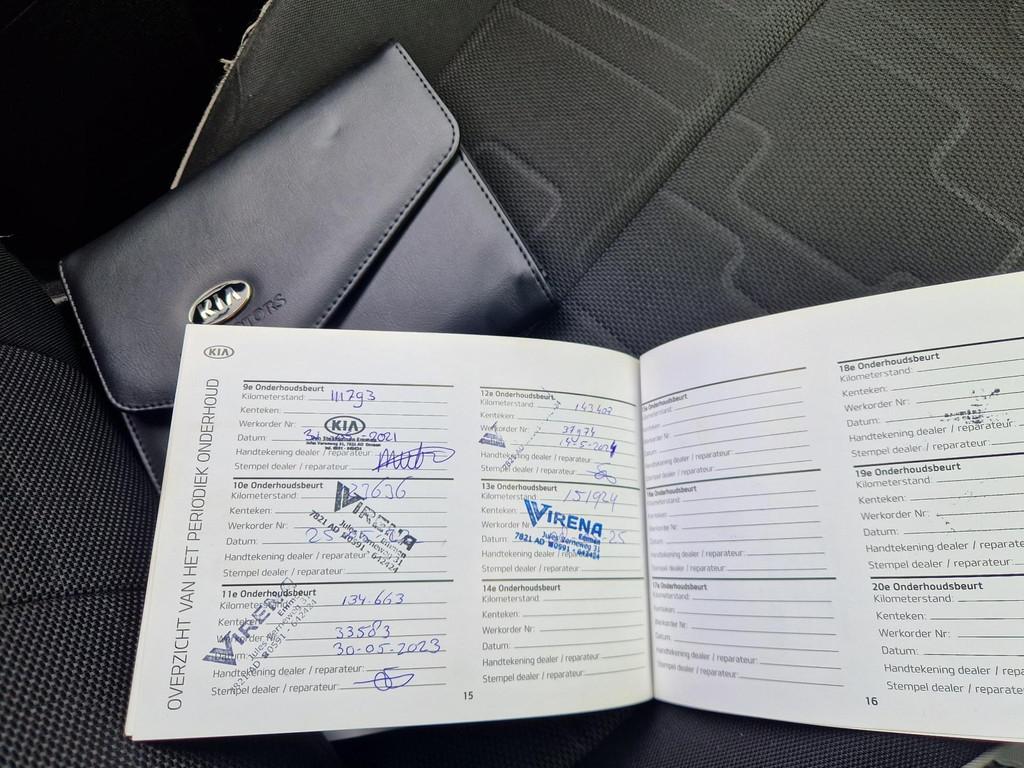 KIA
MOTORS
KIA
OVERZICHT VAN HET PERIODIEK ONDERHOUD
9e Onderhoudsbeurt
Kilometerstand: 111793
Kenteken:
Werkorder Nr:
KIA
Datum: -2021
Handtekening dealer / reparateur:
Stempel dealer / reparateur:
10e Onderhoudsbeurt
Kilometerstand: 23636
Kenteken:
Werkorder Nr:
Datum: 25
Handtekening dealer / reparateur:
Stempel dealer / reparateur:
VIRENA
Emmen
Jules Verneweg 31
7821 AD ☎0591 - 642424
11e Onderhoudsbeurt
Kilometerstand: 134.663
Kenteken:
Werkorder Nr: 33583
Datum: 30-05-2023
Handtekening dealer / reparateur:
Stempel dealer / reparateur:
VIRENA
Emmen
Jules Verneweg 31
7821 AD ☎0591 - 642424
12e Onderhoudsbeurt
Kilometerstand: 143402
Kenteken:
Werkorder Nr: 37974
Datum: 14-5-2024
Handtekening dealer / reparateur:
Stempel dealer / reparateur:
13e Onderhoudsbeurt
Kilometerstand: 151924
Kenteken:
Werkorder Nr:
Datum: -25
Handtekening dealer / reparateur:
Stempel dealer / reparateur:
VIRENA
Emmen
Jules Verneweg 31
7821 AD ☎0591 - 642424
14e Onderhoudsbeurt
Kilometerstand:
Kenteken:
Werkorder Nr:
Datum:
Handtekening dealer / reparateur:
Stempel dealer / reparateur:
15
Onderhoudsbeurt
Kilometerstand:
Kenteken:
Werkorder Nr:
Datum:
Handtekening dealer / reparateur:
Stempel dealer / reparateur:
16e Onderhoudsbeurt
Kilometerstand:
Kenteken:
Werkorder Nr:
Datum:
Handtekening dealer / reparateur:
Stempel dealer / reparateur:
17e Onderhoudsbeurt
Kilometerstand:
Kenteken:
Werkorder Nr:
Datum:
Handtekening dealer / reparateur:
Stempel dealer / reparateur:
18e Onderhoudsbeurt
Kilometerstand:
Kenteken:
Werkorder Nr:
Datum:
Handtekening dealer / reparateur:
Stempel dealer / reparateur:
19e Onderhoudsbeurt
Kilometerstand:
Kenteken:
Werkorder Nr:
Datum:
Handtekening dealer / reparate
Stempel dealer / reparateur
20e Onderhoudsbeurt
Kilometerstand:
Kenteken:
Werkorder Nr:
Datum:
Handtekening dealer / reparate
Stempel dealer / reparate
16